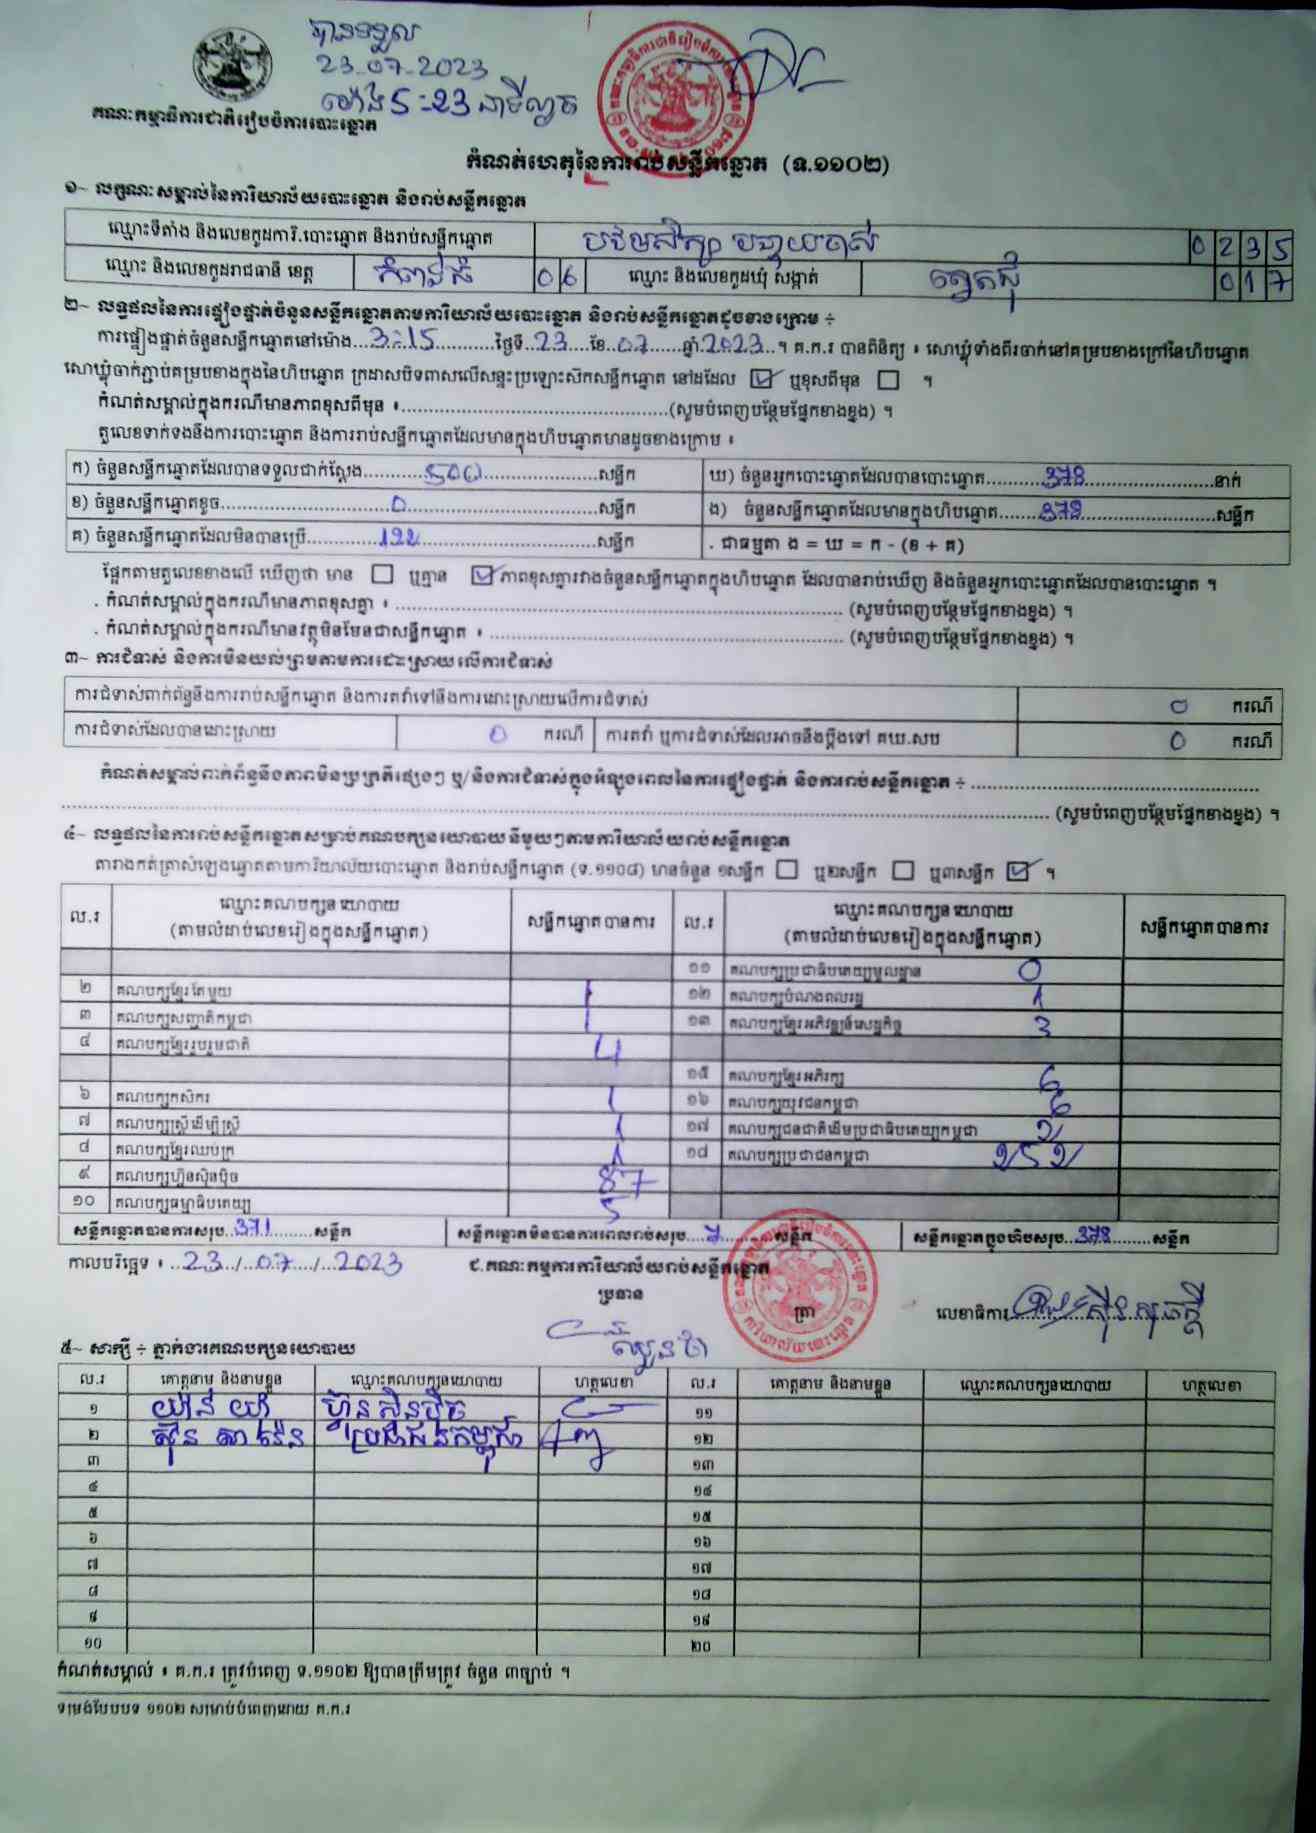 បានទទួល
23-07-2023
ម៉ោង 5:23 នាទីល្ងាច
គណៈកម្មាធិការជាតិរៀបចំការបោះឆ្នោត
កំណត់ហេតុនៃការរាប់សន្លឹកឆ្នោត (ទ.១១០២)
១~ លក្ខណៈសម្គាល់នៃការិយាល័យបោះឆ្នោត និងរាប់សន្លឹកឆ្នោត
ឈ្មោះទីតាំង និងលេខកូដការិ.បោះឆ្នោត និងរាប់សន្លឹកឆ្នោត បឋមសិក្សា 0235
ឈ្មោះ និងលេខកូដរាជធានី ខេត្ត កំពង់ធំ 06 ឈ្មោះ និងលេខកូដឃុំ សង្កាត់ 017
២~ លទ្ធផលនៃការផ្ទៀងផ្ទាត់ចំនួនសន្លឹកឆ្នោតតាមការិយាល័យបោះឆ្នោត និងរាប់សន្លឹកឆ្នោតដូចខាងក្រោម ÷
ការផ្ទៀងផ្ទាត់ចំនួនសន្លឹកឆ្នោតនៅម៉ោង...3:15...ថ្ងៃទី...23...ខែ...07...ឆ្នាំ.2023..។ គ.ក.រ បានពិនិត្យ ៖ សោឃ្នុំទាំងពីរចាក់នៅគម្របខាងក្រៅនៃហិបឆ្នោត
សោឃ្នុំចាក់ភ្ជាប់គម្របខាងក្នុងនៃហិបឆ្នោត ក្រដាសបិទពាសលើសន្ទះប្រឡោះសិកសន្លឹកឆ្នោត នៅដដែល ☑ ឬខុសពីមុន ☐ ។
កំណត់សម្គាល់ក្នុងករណីមានភាពខុសពីមុន ៖...(សូមបំពេញបន្ថែមផ្នែកខាងខ្នង) ។
តួលេខទាក់ទងនឹងការបោះឆ្នោត និងការរាប់សន្លឹកឆ្នោតដែលមានក្នុងហិបឆ្នោតមានដូចខាងក្រោម ៖
ក) ចំនួនសន្លឹកឆ្នោតដែលបានទទួលជាក់ស្តែង...500...សន្លឹក ឃ) ចំនួនអ្នកបោះឆ្នោតដែលបានបោះឆ្នោត...378...នាក់
ខ) ចំនួនសន្លឹកឆ្នោតខូច...0...សន្លឹក ង) ចំនួនសន្លឹកឆ្នោតដែលមានក្នុងហិបឆ្នោត...378...សន្លឹក
គ) ចំនួនសន្លឹកឆ្នោតដែលមិនបានប្រើ...122...សន្លឹក . ជាធម្មតា ង = ឃ = ក - (ខ + គ)
ផ្អែកតាមតួលេខខាងលើ ឃើញថា មាន ☐ ឬគ្មាន ☑ ភាពខុសគ្នារវាងចំនួនសន្លឹកឆ្នោតក្នុងហិបឆ្នោត ដែលបានរាប់ឃើញ និងចំនួនអ្នកបោះឆ្នោតដែលបានបោះឆ្នោត ។
. កំណត់សម្គាល់ក្នុងករណីមានភាពខុសគ្នា ៖ ... (សូមបំពេញបន្ថែមផ្នែកខាងខ្នង) ។
. កំណត់សម្គាល់ក្នុងករណីមានវត្ថុមិនមែនជាសន្លឹកឆ្នោត ៖ ... (សូមបំពេញបន្ថែមផ្នែកខាងខ្នង) ។
៣~ ការជំទាស់ និងការមិនយល់ព្រមតាមការដោះស្រាយលើការជំទាស់
ការជំទាស់ពាក់ព័ន្ធនឹងការរាប់សន្លឹកឆ្នោត និងការតវ៉ាទៅនឹងការដោះស្រាយលើការជំទាស់ 0 ករណី
ការជំទាស់ដែលបានដោះស្រាយ 0 ករណី ការតវ៉ា ឬការជំទាស់ដែលអាចនឹងប្តឹងទៅ គឃ.សប 0 ករណី
កំណត់សម្គាល់ពាក់ព័ន្ធនឹងភាពមិនប្រក្រតីផ្សេងៗ ឬ/និងការជំទាស់ក្នុងអំឡុងពេលនៃការផ្ទៀងផ្ទាត់ និងការរាប់សន្លឹកឆ្នោត ÷ ...
... (សូមបំពេញបន្ថែមផ្នែកខាងខ្នង) ។
៤~ លទ្ធផលនៃការរាប់សន្លឹកឆ្នោតសម្រាប់គណបក្សនយោបាយនីមួយៗតាមការិយាល័យរាប់សន្លឹកឆ្នោត
តារាងកត់ត្រាសំឡេងឆ្នោតតាមការិយាល័យបោះឆ្នោត និងរាប់សន្លឹកឆ្នោត (ទ.១១០៨) មានចំនួន ១សន្លឹក ☐ ឬ២សន្លឹក ☐ ឬ៣សន្លឹក ☑ ។
ល.រ ឈ្មោះគណបក្សនយោបាយ (តាមលំដាប់លេខរៀងក្នុងសន្លឹកឆ្នោត) សន្លឹកឆ្នោតបានការ ល.រ ឈ្មោះគណបក្សនយោបាយ (តាមលំដាប់លេខរៀងក្នុងសន្លឹកឆ្នោត) សន្លឹកឆ្នោតបានការ
១១ គណបក្សប្រជាធិបតេយ្យមូលដ្ឋាន 0
២ គណបក្សខ្មែរតែមួយ 1 ១២ គណបក្សបំណងពលរដ្ឋ 1
៣ គណបក្សសញ្ជាតិកម្ពុជា 1 ១៣ គណបក្សខ្មែរអភិវឌ្ឍន៍សេដ្ឋកិច្ច 3
៤ គណបក្សខ្មែររួបរួមជាតិ 4
១៥ គណបក្សខ្មែរអភិរក្ស 6
៦ គណបក្សកសិករ 1 ១៦ គណបក្សយុវជនកម្ពុជា 6
៧ គណបក្សស្ត្រីដើម្បីស្ត្រី 1 ១៧ គណបក្សជនជាតិដើមប្រជាធិបតេយ្យកម្ពុជា 2
៨ គណបក្សខ្មែរឈប់ក្រ 1 ១៨ គណបក្សប្រជាជនកម្ពុជា 252
៩ គណបក្សហ៊្វុនស៊ិនប៉ិច 87
១០ គណបក្សធម្មាធិបតេយ្យ 5
សន្លឹកឆ្នោតបានការសរុប..371...សន្លឹក សន្លឹកឆ្នោតមិនបានការពេលរាប់សរុប...7...សន្លឹក សន្លឹកឆ្នោតក្នុងហិបសរុប..378...សន្លឹក
កាលបរិច្ឆេទ ៖ ..23../..07../..2023 ជ.គណៈកម្មការការិយាល័យរាប់សន្លឹកឆ្នោត
ប្រធាន
ត្រា
លេខាធិការ
៥~ សាក្សី ÷ ភ្នាក់ងារគណបក្សនយោបាយ
ល.រ គោត្តនាម និងនាមខ្លួន ឈ្មោះគណបក្សនយោបាយ ហត្ថលេខា ល.រ គោត្តនាម និងនាមខ្លួន ឈ្មោះគណបក្សនយោបាយ ហត្ថលេខា
១ យ៉ាន់ យ៉ា ហ៊្វុនស៊ិនប៉ិច ១១
២ ប្រជាជនកម្ពុជា ១២
៣ ១៣
៤ ១៤
៥ ១៥
៦ ១៦
៧ ១៧
៨ ១៨
៩ ១៩
១០ ២០
កំណត់សម្គាល់ ៖ គ.ក.រ ត្រូវបំពេញ ទ.១១០២ ឱ្យបានត្រឹមត្រូវ ចំនួន ៣ច្បាប់ ។
ទម្រង់បែបបទ ១១០២ សម្រាប់បំពេញដោយ គ.ក.រ